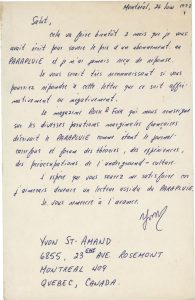 Montréal, 26 Juin 1972
Salut,
cela va faire bientôt 2 mois que je vous
avait écrit pour savoir le prix d'un abonnement au
PARAPLUIE et je n'ai jamais reçu de réponse.
Je vous serait très reconnaissant si vous
pourriez répondre à cette lettre que ce soit affir-
mativement ou négativement.
Le magazine Rock & Folk qui nous renseigne
sur les diverses parutions marginales françaises
décrivait le PARAPLUIE comme étant le journal
carrefour et forum des théories, des expériences,
des préoccupations de l'underground-culture.
J'espère que vous saurez me satisfaire car
j'aimerais devenir un lecteur assidu du PARAPLUIE.
Je vous remercie à l'avance.
Yvon
YVON ST-AMAND
6855, 23ème AVE. ROSEMONT
MONTRÉAL 409
QUÉBEC, CANADA.